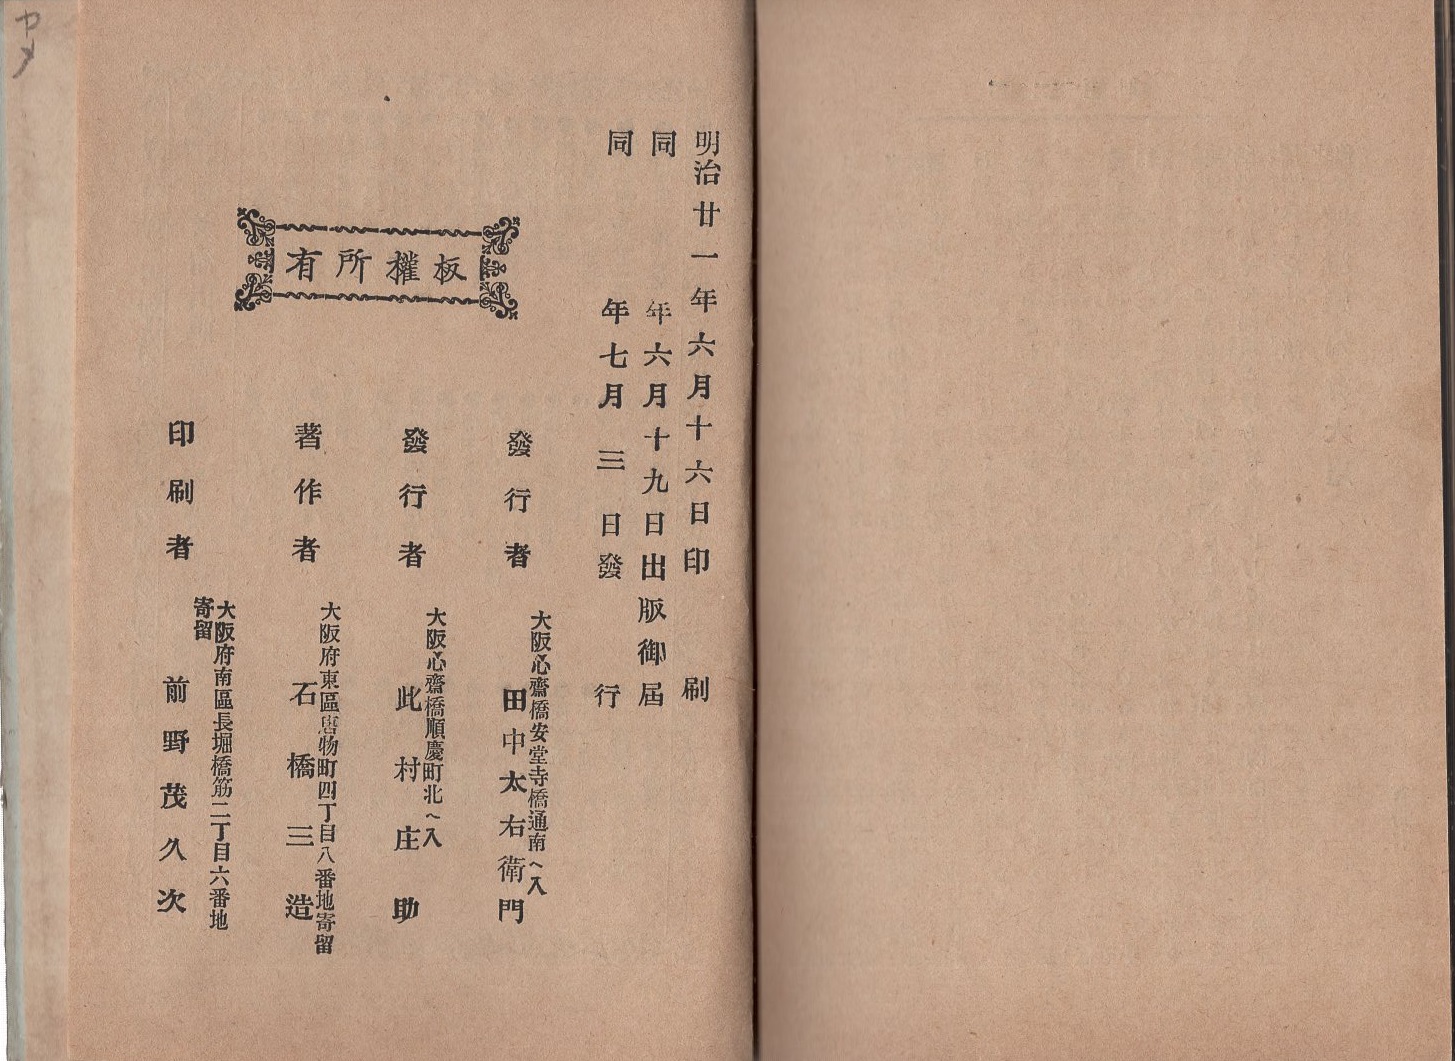 明治廿一年六月十六日印刷
同年六月十九日出版御届
同年七月三日發行
板權所有
發行者
大阪心齋橋安堂寺橋通南へ入
田中太右衛門
發行者
大阪心齋橋順慶町北へ入
此村庄助
著作者
大阪府東區唐物町四丁目八番地寄留
石橋三造
印刷者
大阪府南區長堀橋筋二丁目六番地
寄留
前野茂久次
ヤメ